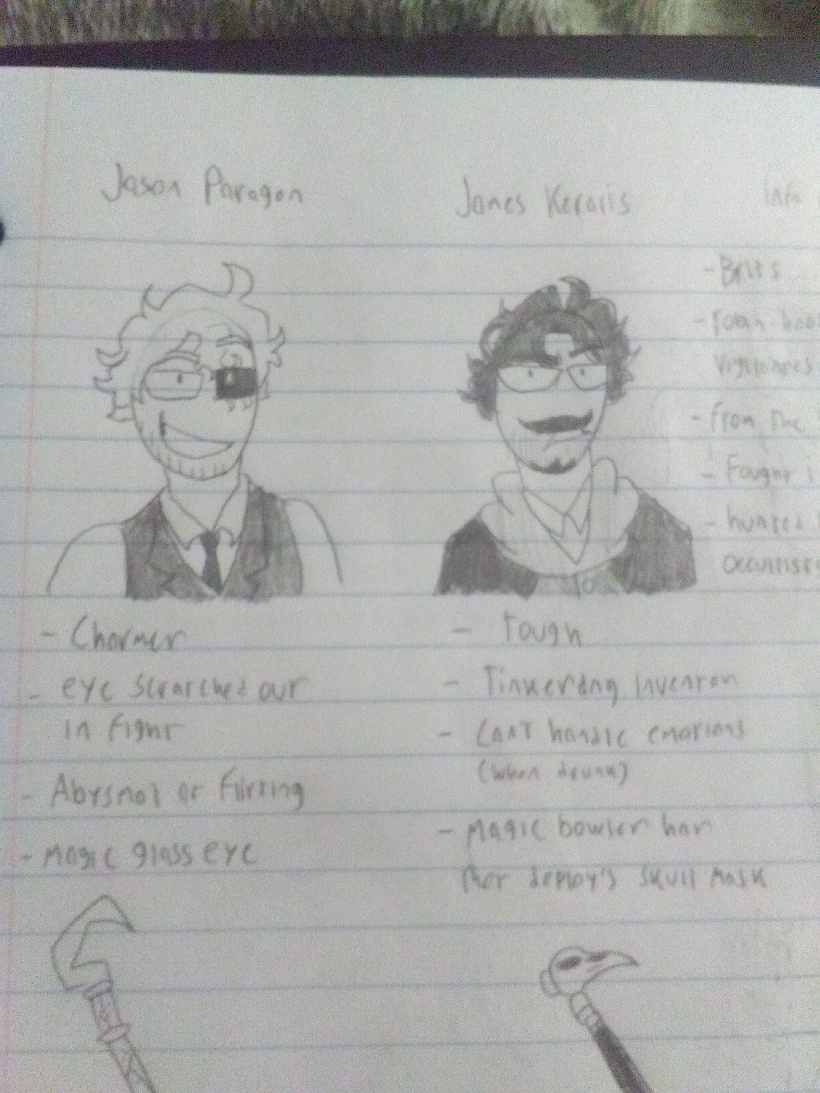 Jason Paragon
- Charmer
- eye scratched out
in fight
- Abysmal at flirting
- Magic glass eye
Jones Keraris
- Tough
- Tinkerdng inventor
- Cant handle emotions
(when drunk)
- Magic bowler hat
that deploy's skull mask
info
- Brits
- robin-hoo
Vigilantes
- from the
- Fought
- hunted
Occultist